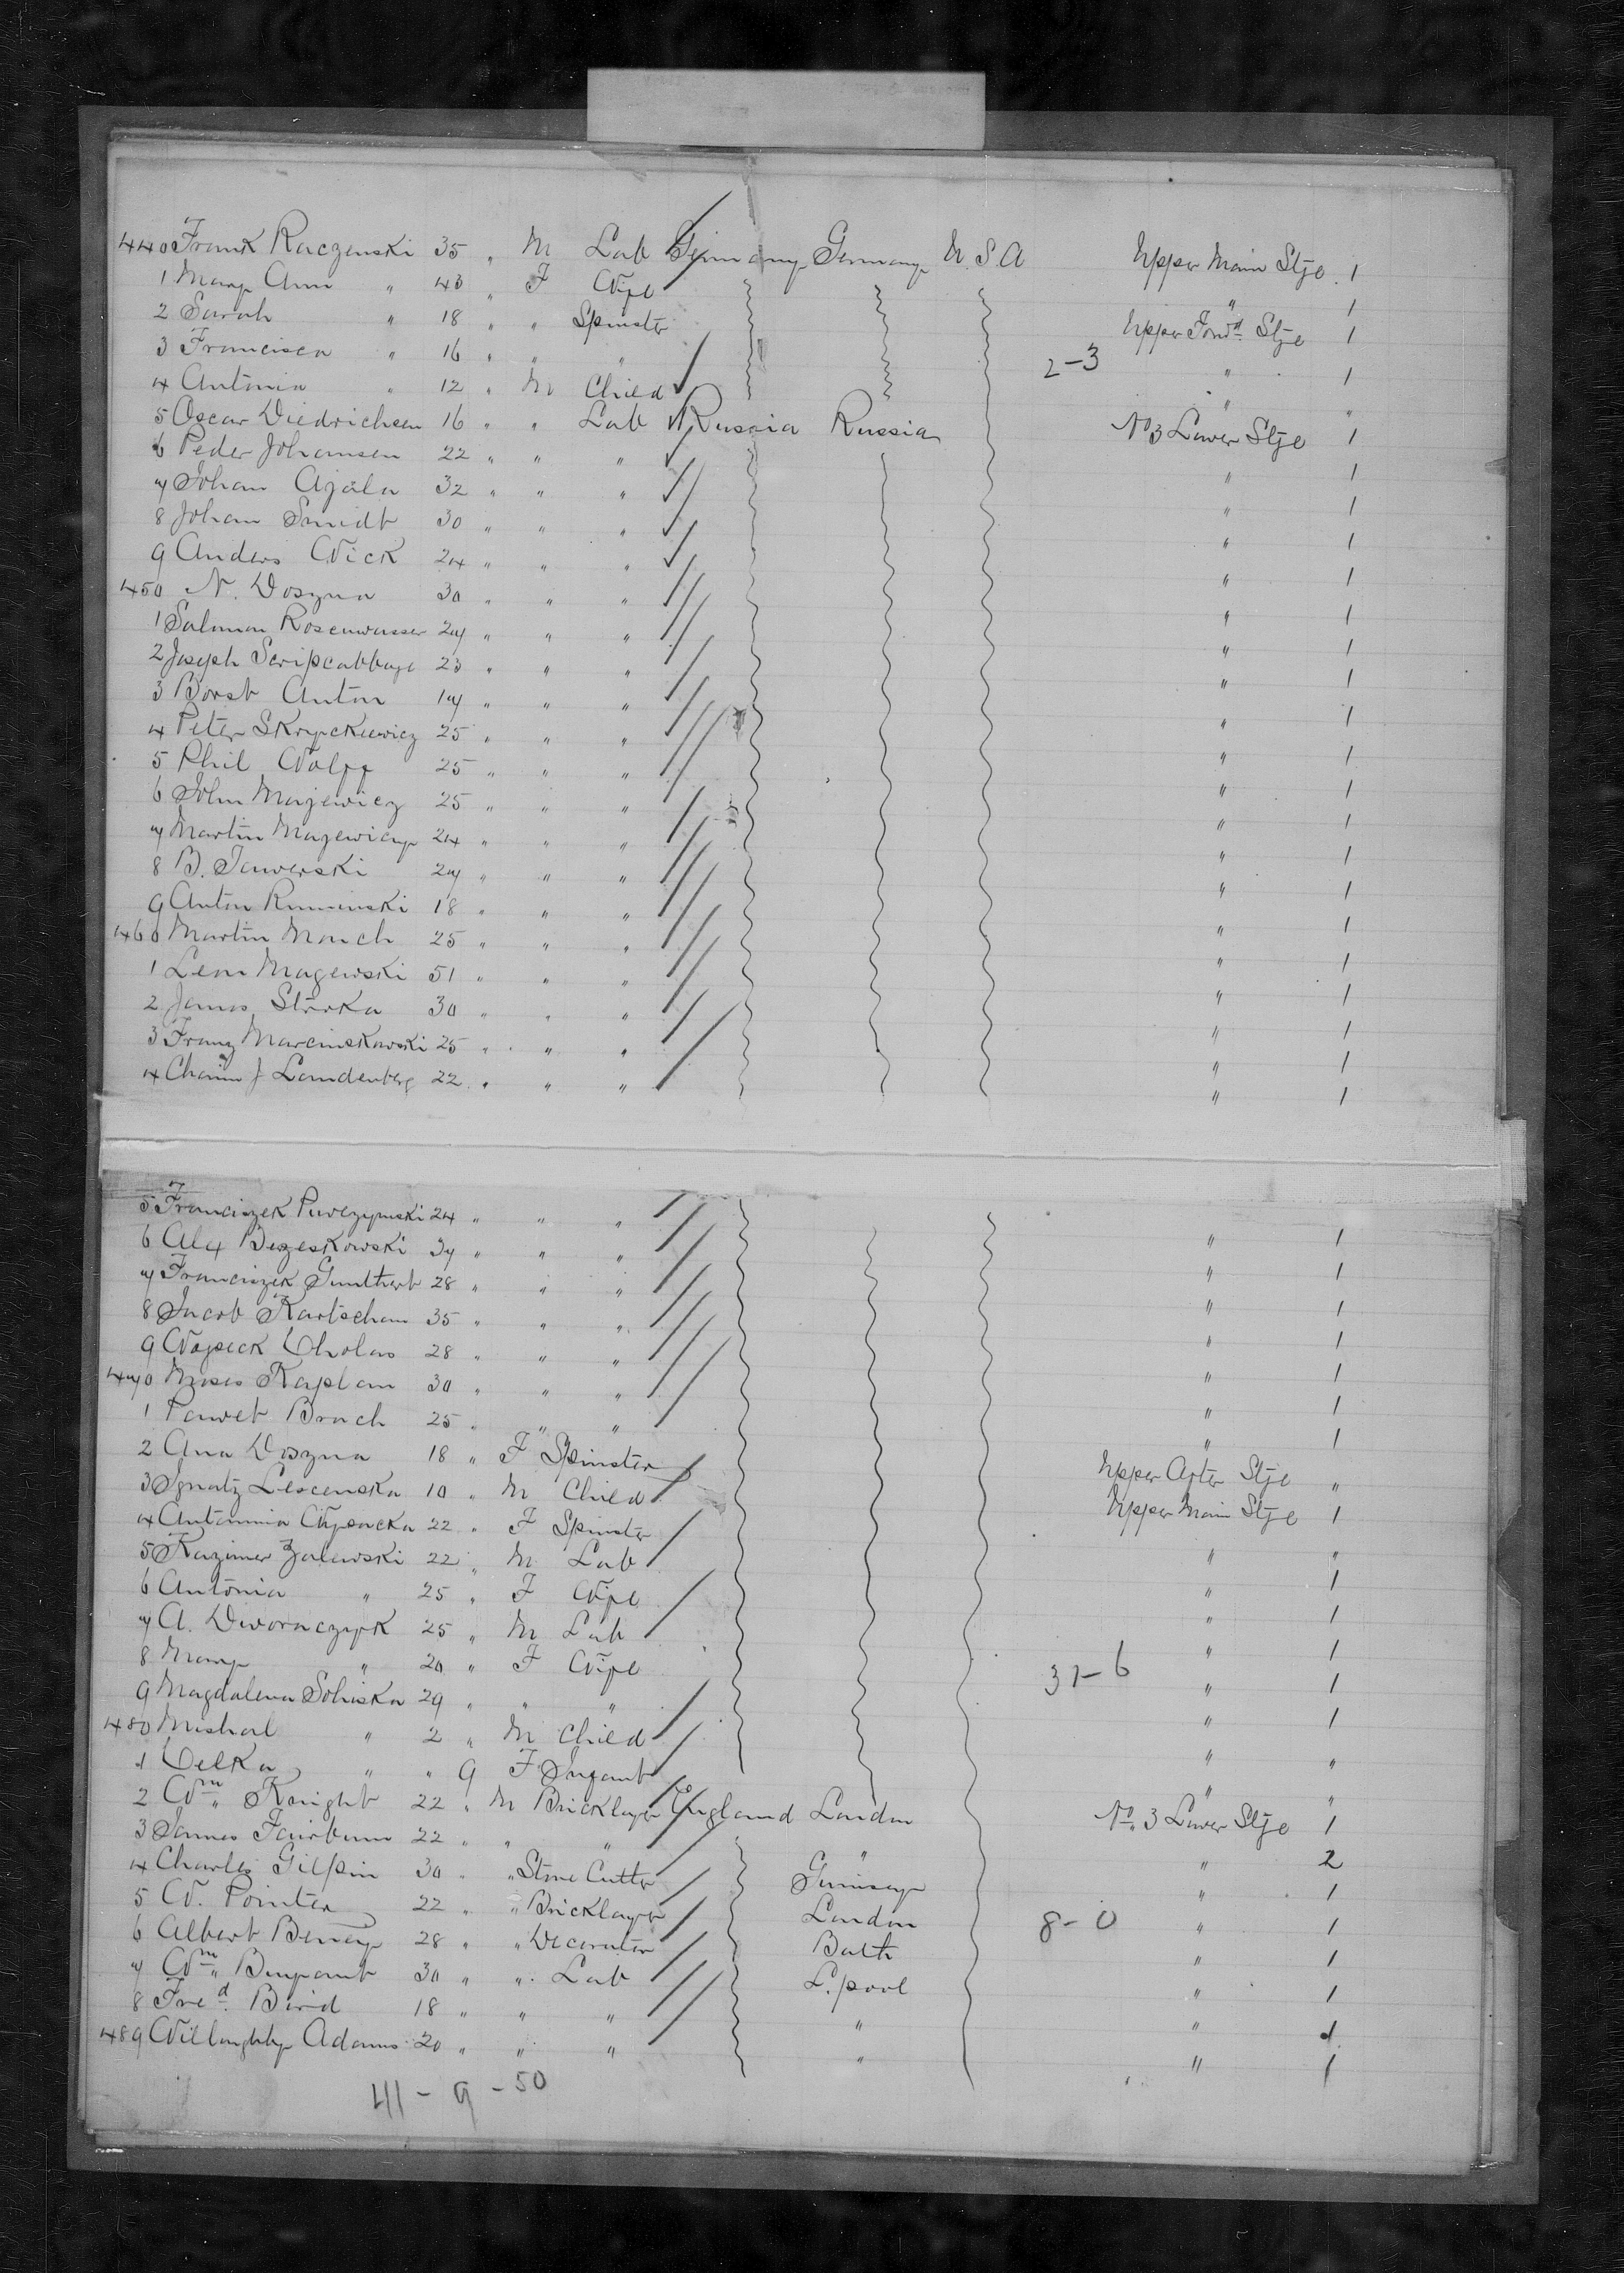 440 Frank Raczenski 35 " M Lab Germany Germany U.S.A Upper Main Stge. 1
1 Mary Ann " 43 " F Wife " 1
2 Sarah " 18 " " Spinster Upper Forwd Stge 1
3 Francisca " 16 " " " 2-3 " 1
4 Antonia " 12 " M Child " "
5 Oscar Diedrichsen 16 " " Lab Russia Russia No 3 Lower Stge 1
6 Peder Johansen 22 " " " " 1
7 Johan Ajala 32 " " " " 1
8 Johan Smidt 30 " " " " 1
9 Anders Wick 24 " " " " 1
450 N. Doszna 30 " " " " 1
1 Salomon Rosenwasser 27 " " " " 1
2 Joseph Scripcabbage 23 " " " " 1
3 Borst Anton 17 " " " " 1
4 Peter Skryckiewicz 25 " " " " 1
5 Phil Wolff 25 " " " " 1
6 John Majewicz 25 " " " " 1
7 Martin 24 " " " " 1
8 B. Jawerski 27 " " " " 1
9 Anton Ruminski 18 " " " " 1
460 Martin Monch 25 " " " " 1
1 Leon Magewski 51 " " " " 1
2 Stirka 30 " " " " 1
3 Franz Marcinskowski 25 " " " " 1
4 Chaim J Landenberg 22 " " " " 1
5 Franciszek 24 " " " " 1
6 Alex Bezeskowski 37 " " " " 1
7 Franciszek 28 " " " " 1
8 Jacob Kartscham 35 " " " " 1
9 28 " " " " 1
470 Moses Kaplan 30 " " " " 1
1 Brach 25 " " " " 1
2 Ana Doszna 18 " F Spinster Upper After Stge "
3 Ignatz Lescenska 10 " M Child Upper Main Stge 1
4 Antonnia 22 " F Spinster " "
5 Kazimer Zalewski 22 " M Lab " 1
6 Antonia " 25 " F Wife " 1
7 A. Dwornczyk 25 " M Lab " 1
8 Mary " 20 " F Wife 31-6 " 1
9 Magdalena Sohiska 29 " " " " 1
480 Mishal " 2 " M Child " "
1 " " 9 F Infant " "
2 Wm. Knight 22 " M Bricklayer England London No. 3 Lower Stge 1
3 James Fairburn 22 " " " " " 2
4 Charles Gilpin 30 " " Stone Cutter " 1
5 W. Pointer 22 " " Bricklayer London 8-0 " 1
6 Albert 28 " " Decorator Bath " 1
7 Wm. 30 " " Lab L.pool " 1
8 Fred. Bird 18 " " " " " 1
489 Willoughby Adams 20 " " " " " 1
41-9-50